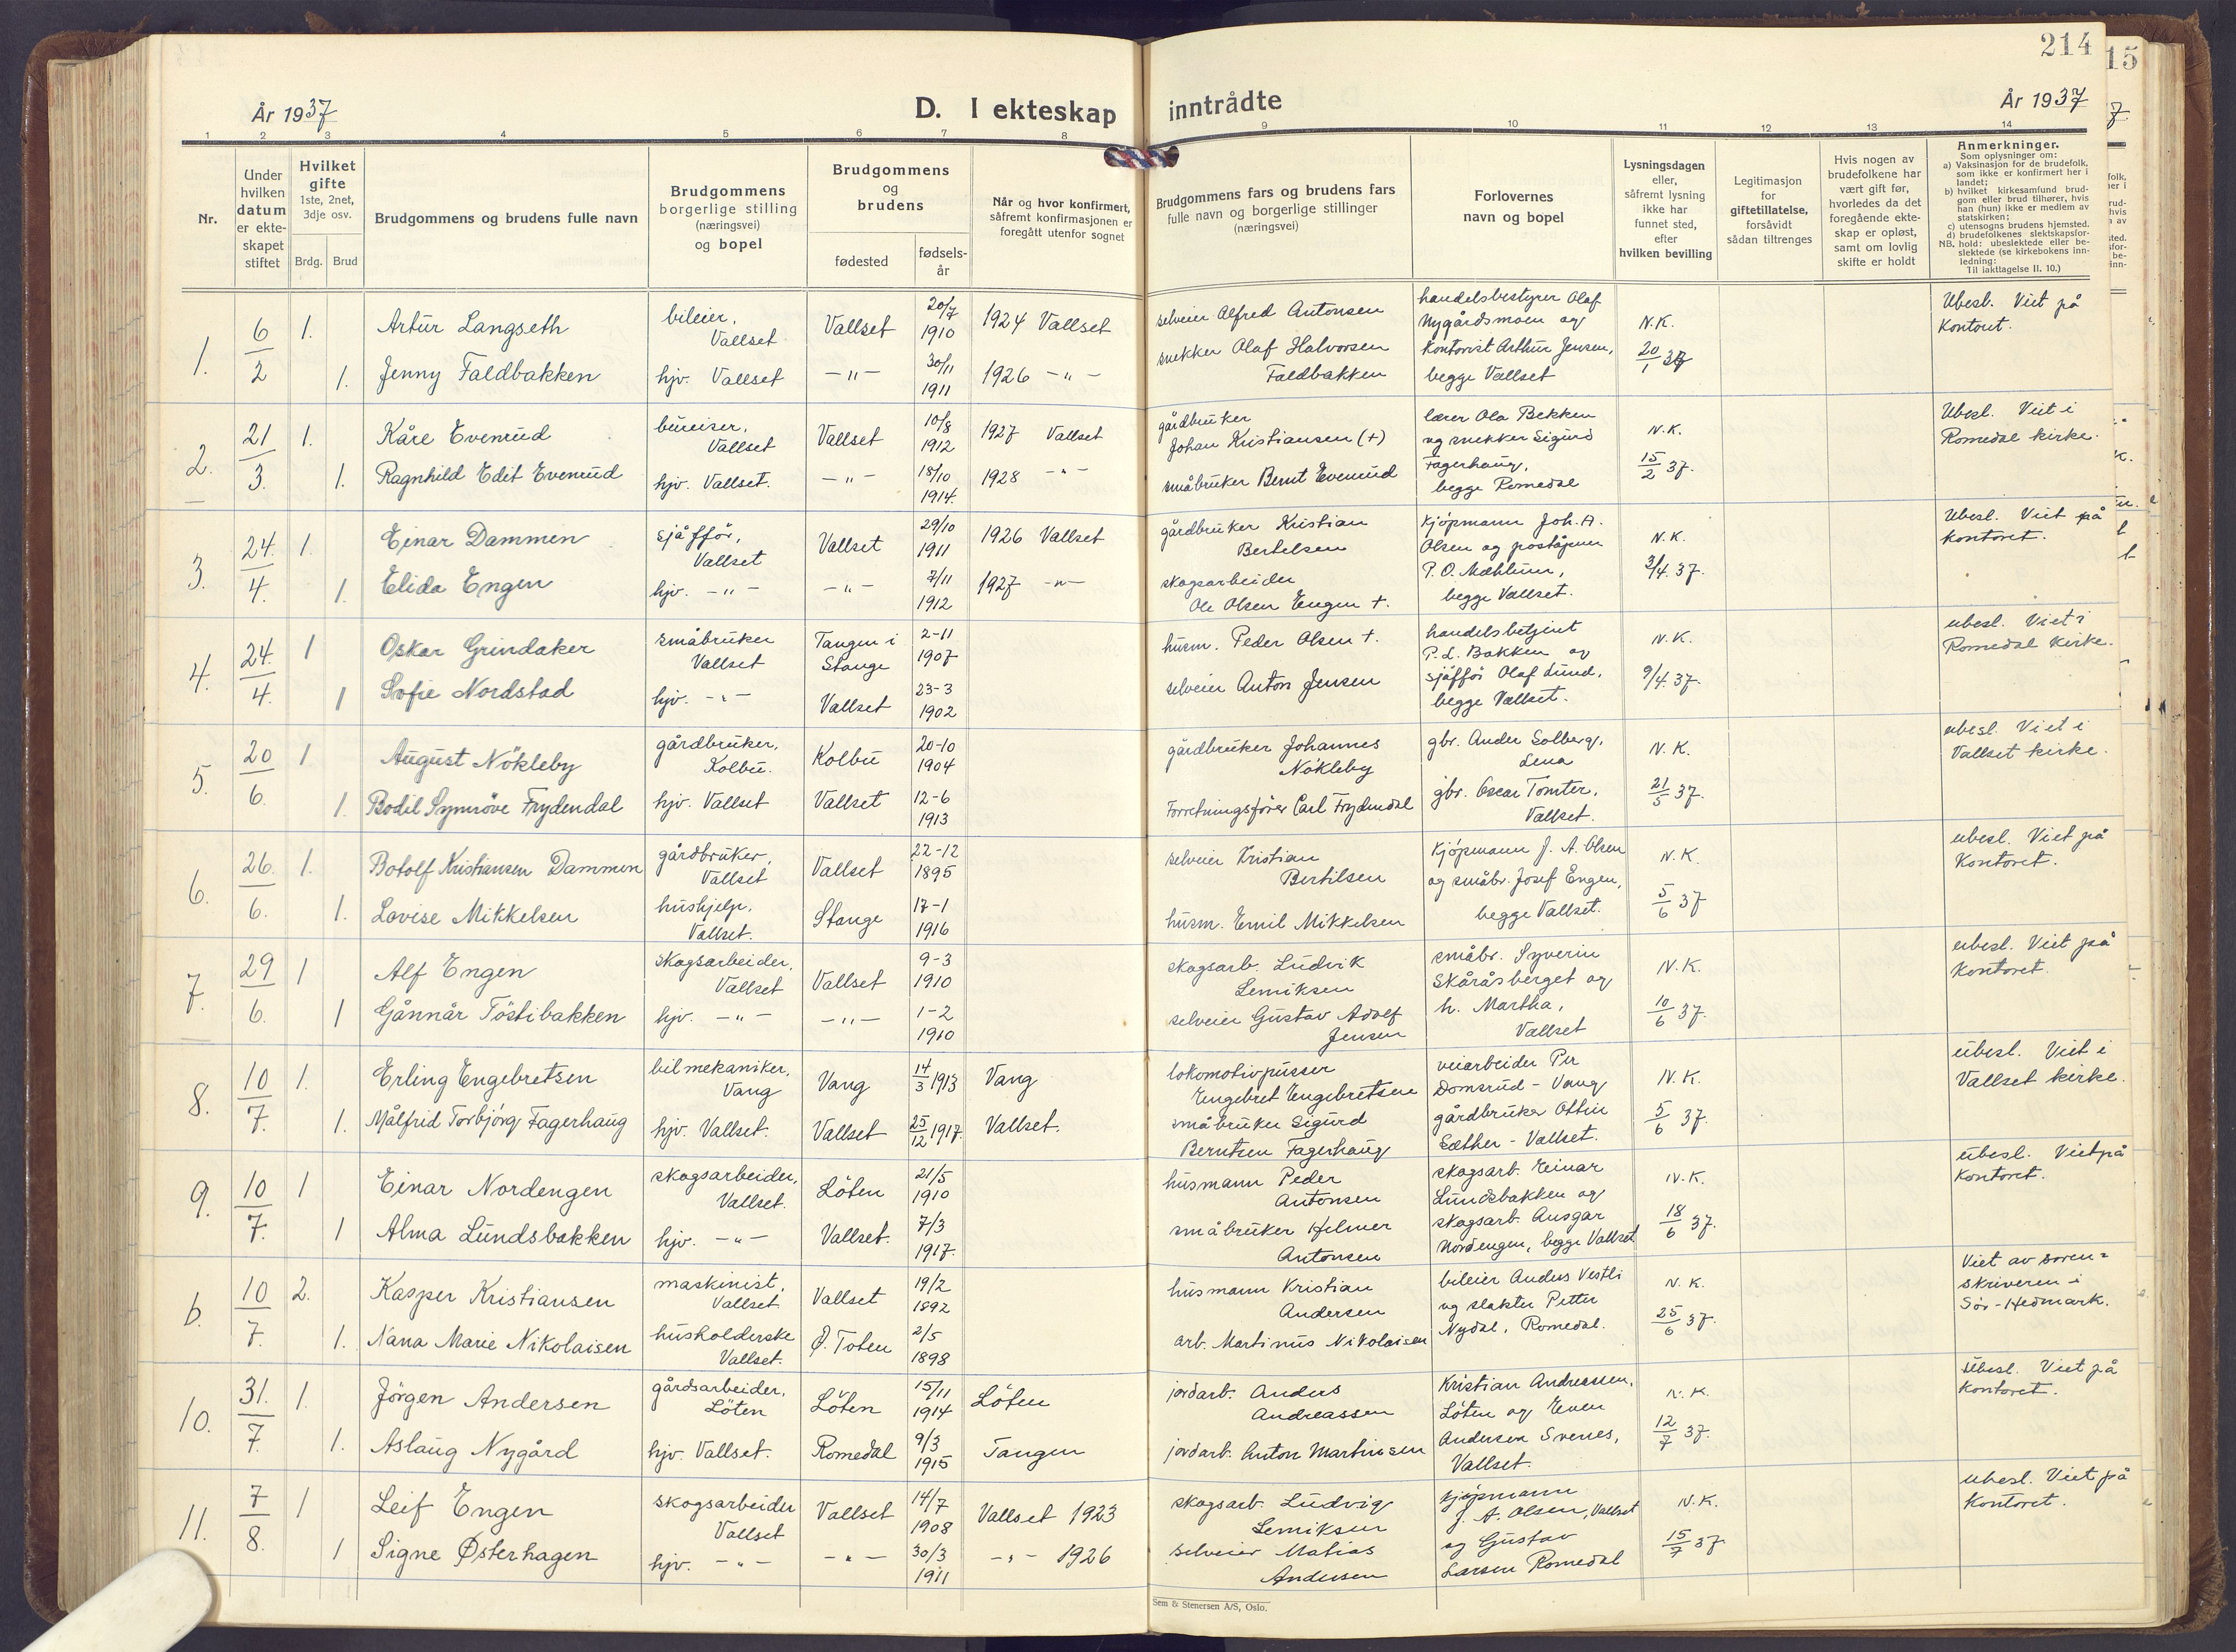 214
15
År 1937
D. I ekteskap inntrådte
År 1937
1 2 3 4 5 6 7 8 9 10 11 12 13 14
Nr.
Under hvilken datum er ekteskapet stiftet
Hvilket gifte 1ste, 2net, 3dje osv.
Brdg. Brud
Brudgommens og brudens fulle navn
Brudgommens borgerlige stilling (næringsvei) og bopel
Brudgommens og brudens
fødested
fødsels-år
Når og hvor konfirmert, såfremt konfirmasjonen er foregått utenfor sognet
Brudgommens fars og brudens fars fulle navn og borgerlige stillinger (næringsvei)
Forlovernes navn og bopel
Lysningsdagen eller, såfremt lysning ikke har funnet sted, efter hvilken bevilling
Legitimasjon for giftetillatelse, forsåvidt sådan tiltrenges
Hvis nogen av brudefolkene har vært gift før, hvorledes da det foregående ekteskap er opløst, samt om lovlig skifte er holdt
Anmerkninger.
Som oplysninger om:
a) Vaksinasjon for de brudefolk, som ikke er konfirmert her i landet;
b) hvilket kirkesamfund brudgom eller brud tilhører, hvis han (hun) ikke er medlem av statskirken;
c) utensogns brudens hjemsted.
d) brudefolkenes slektskapsfor-
NB. hold: ubeslektede eller beslektede (se kirkebokens innledning:
Til iakttagelse II. 10.)
1. 6/2 1. Artur Langseth bileier, Vallset Vallset 20/7 1910 1924 Vallset selveier Alfred Antonsen handelsbestyrer Olaf Nygårdsmoen og N.K. Ubesl. Viet på Kontoret.
1. Jenny Faldbakken hjv. Vallset -"- 30/11 1911 1926 -"- snekker Olaf Halvorsen Faldbakken Kontorist Arthur Jensen, begge Vallset 20/1 37
2. 21/3. 1. Kåre Evenrud bureiser, Vallset Vallset 10/8 1912 1927 Vallset gårdbruker Johan Kristiansen (+) lærer Ola Bekken og snekker Sigurd N.K. Ubesl. Viet i Romedal kirke.
1. Ragnhild Edit Evenrud hjv. Vallset. -"- 18/10 1914. 1928 -"- småbruker Bernt Evenrud Fagerhaug, begge Romedal 15/2 37.
3. 24./4. 1. Einar Dammen sjåffør, Vallset Vallset 29/10 1911 1926 Vallset gårdbruker Kristian Bertelsen Kjøpmann Joh. A. Olsen og poståpner N.K. Ubesl. Viet på kontoret.
1. Elida Engen hjv. -"- -"- 7/11 1912 1927 -"- skogsarbeider Ole Olsen Engen +. P. O. Mæhlum, begge Vallset. 3/4. 37.
4. 24./4. 1 Oskar Grindaker småbruker Vallset Tangen i Stange 2-11 1907 husm. Peder Olsen +. handelsbetjent P. L. Bakken og N.K. ubesl. Viet i Romedal kirke.
1 Sofie Nordstad hjv. -"- Vallset 23-3 1902 selveier Anton Jensen sjåffør Olaf Lund, begge Vallset. 9/4. 37.
5. 20/6. 1 August Nökleby gårdbruker, Kolbu. Kolbu 20-10 1904 gårdbruker Johannes Nökleby gbr. Ander Solberg, Lena N.K. ubesl. Viet i Vallset kirke.
1. Bodil Synnöve Frydendal hjv. Vallset Vallset 12-6 1913 Forretningsfører Carl Frydendal gbr. Oscar Tomter, Vallset. 21/5 37.
6. 26./6. 1. Botolf Kristiansen Dammen gårdbruker, Vallset Vallset 22-12 1895 selveier Kristian Bertilsen Kjøpmann J. A. Olsen og småbr. Josef Engen, N.K. ubesl. Viet på Kontoret.
1. Lovise Mikkelsen hushjelp, Vallset. Stange 17-1 1916 husm. Emil Mikkelsen begge Vallset. 5/6 37
7. 29/6. 1 Alf Engen skogsarbeider, Vallset Vallset 9-3 1910 skogsarb. Ludvik Lemiksen småbr. Syverin Skåråsberget og N.K. ubesl. Viet på Kontoret.
1 Gånnår Töstibakken hjv. -"- -"- 1-2 1910 selveier Gustav Adolf Jensen h. Martha, Vallset 10/6 37.
8. 10/7. 1. Erling Engebretsen bilmekaniker, Vang Vang 14/3 1913 Vang lokomotivpusser Engebret Engebretsen veiarbeider Per Domsrud - Vang N.K. ubesl. Viet i Vallset kirke.
1. Målfrid Torbjörg Fagerhaug hjv. Vallset. Vallset 25/12 1917. Vallset. småbruker Sigurd Berntsen Fagerhaug gårdbruker Ottin Sæther - Vallset. 5/6 37.
9. 10/7. 1 Einar Nordengen skogsarbeider, Vallset. Löten 21/5 1910 husmann Peder Antonsen skogsarb. Einar Lundsbakken og N.K. ubesl. Viet på Kontoret.
1 Alma Lundsbakken hjv. -"- Vallset. 7/3 1917. småbruker Helmer Antonsen skogsarb. Ansgar Nordengen, begge Vallset 18/6 37.
b. 10/7. 2. Kasper Kristiansen maskinist, Vallset Vallset 19/2 1892 husmann Kristian Andersen bileier Anders Vestli og slakter Petter N.K. Viet av sorenskriveren i Sør-Hedmark.
1. Nana Marie Nikolaisen husholderske Vallset. Ø. Toten 2/5 1898 arb. Martinus Nikolaisen Nydal, Romedal. 25/6 37.
10. 31./7. 1. Jörgen Andersen gårdsarbeider, Löten Löten 15/11 1914 Löten jordarb. Anders Andreassen Kristian Andreassen, Löten og Even N.K. Ubesl. Viet på Kontoret.
1. Aslaug Nygård hjv. Vallset. Romedal 9/3 1915 Tangen jordarb. Anton Martinsen Andersen Svenes, Vallset. 12/7 37.
11. 7/8. 1 Leif Engen skogsarbeider Vallset Vallset 14/7 1908 Vallset 1923 skogsarb. Ludvig Lemiksen Kjøpmann J. A. Olsen, Vallset N.K. ubesl. Viet på Kontoret.
1 Signe Østerhagen hjv. -"- -"- 30/3 1911 -"- 1926 selveier Matias Andersen og Gustav Larsen Romedal 15/7 37
Sem & Stenersen A/S, Oslo.